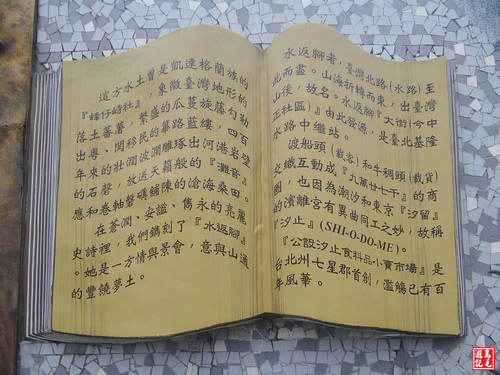 這方水土曾是凱達格蘭族的
『蜂仔峙社』，象徵臺灣地形的
落土蕃薯，繁盛的瓜蔓旋藤勾勒
出粵、閩移民的篳路藍縷，四百
年來的壯濶波瀾雕琢出河港岩壁
的石磬，放送天籟般的『灘音』
應和卷軸磐礴鋪陳的滄海桑田。
在蒼潤、安謐、雋永的亮麗
史詩裡，我們鐫刻了『水返腳』
。她是一方情與景會，意與山通
的豐饒夢土。
水返腳者，臺灣北路(水路)至
此而盡。山海折轉而東，出臺灣
山後，故名。水返腳『大街(今中
正社區)』由此發源，是臺北基隆
水路中繼站。
渡船頭(載客)和牛稠頭(載貨)
交織互動成『九萬廿七千』的商
圈，也因為潮汐和東京『汐留』
的濱離宮有異曲同工之妙，故稱
『汐止』(SHI-O-DO-ME)。
『公設汐止食料品小賣市場』是
台北州七星郡首創，濫觴已有百
年風華。